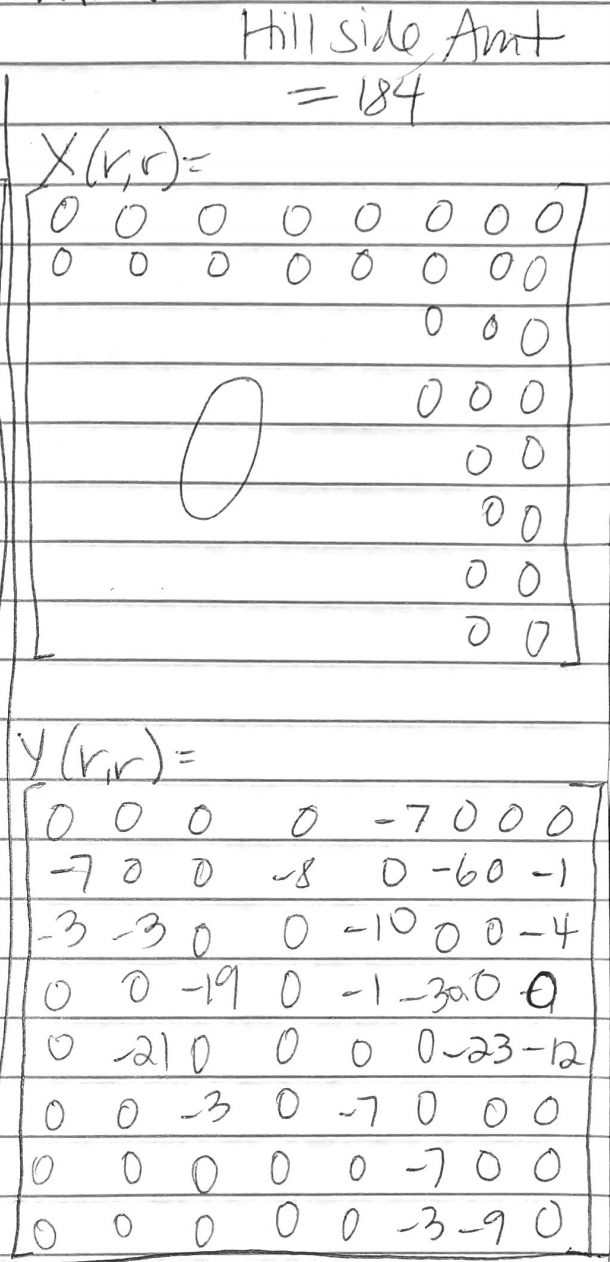 Hill side Amt
= 184
X(r,r)=
0 0 0 0 0 0 0 0
0 0 0 0 0 0 0 0
0 0 0
0 0 0
0
0 0
0 0
0 0
0 0
Y(r,r)=
0 0 0 0 -7 0 0 0
-7 0 0 -8 0 -6 0 -1
-3 -3 0 0 -10 0 0 -4
0 0 -19 0 -1 -30 0 0
0 -21 0 0 0 0 -23 -12
0 0 -3 0 -7 0 0 0
0 0 0 0 0 -7 0 0
0 0 0 0 0 -3 -9 0